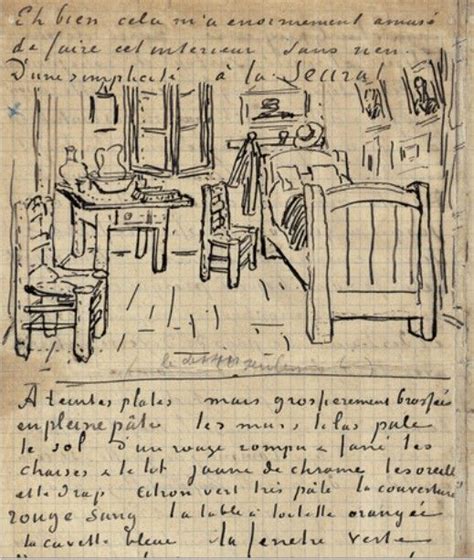 Eh bien cela m'a enormement amusé
de faire cet interieur sans rien.
D'une simplicité à la Seurat.
À teintes plates mais grossierement brossée
en pleine pâte les murs lilas pale
le sol d'un rouge rompu & fané les
chaises & le lit jaune de chrome les oreill
et le drap citron vert très pâle la couverture
rouge sang la table à toilette orangée
la cuvette bleue la fenetre verte